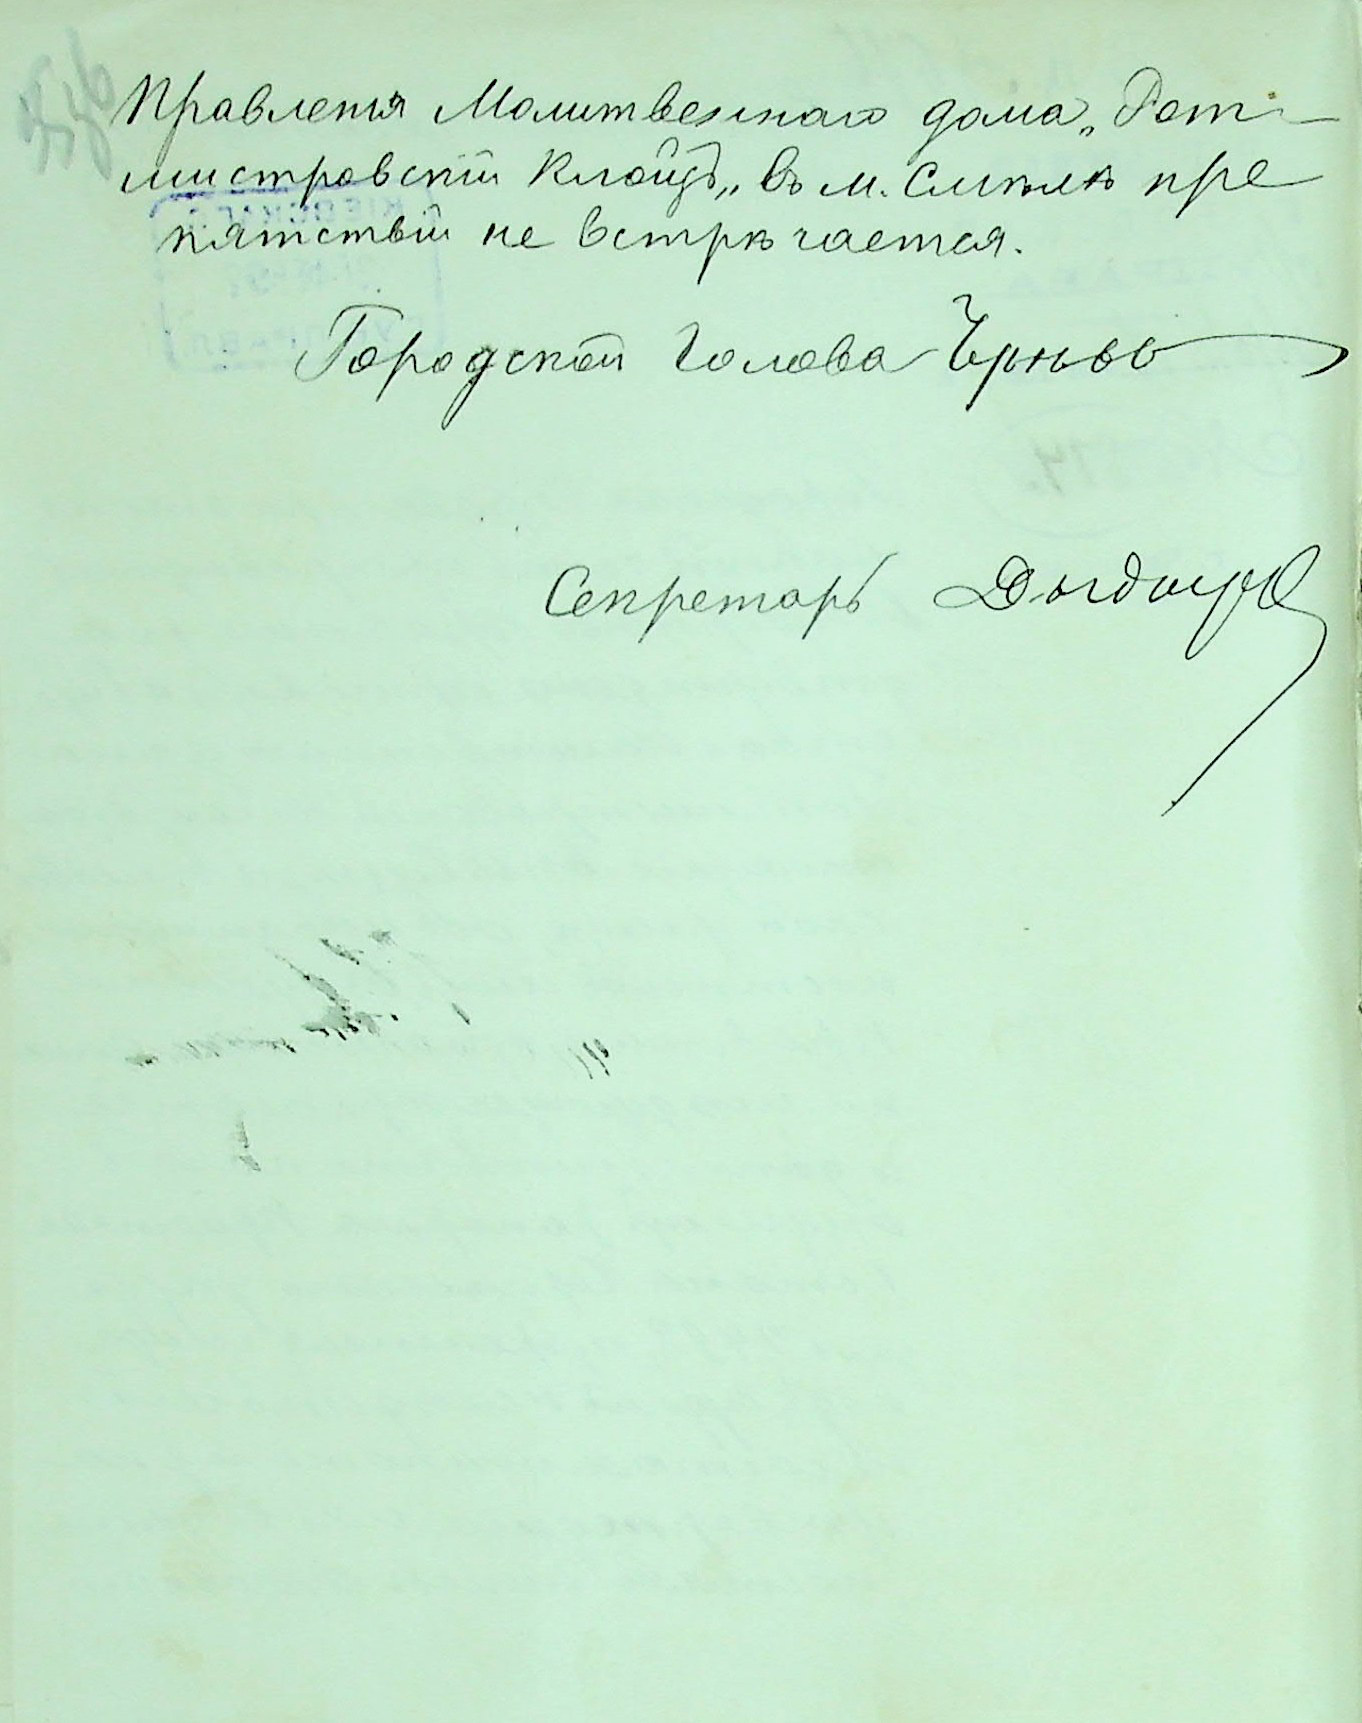 Правленія Молитвеннаго дома „Рот-
мистровскій Клойзъ„ въ м. Смѣлѣ пре
пятствій не встрѣчается.
Городской Голова
Секретарь